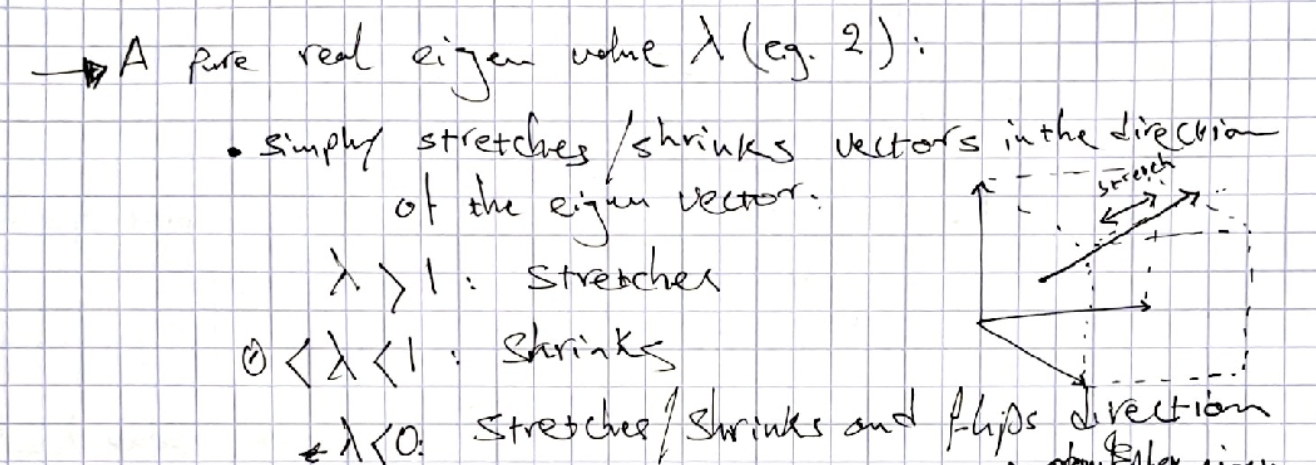 → A pure real eigen value λ (eg. 2):
• simply stretches/shrinks vectors in the direction
of the eigen vector.
stretch
λ > 1: stretches
0 < λ < 1: Shrinks
λ < 0: stretches/shrinks and flips direction